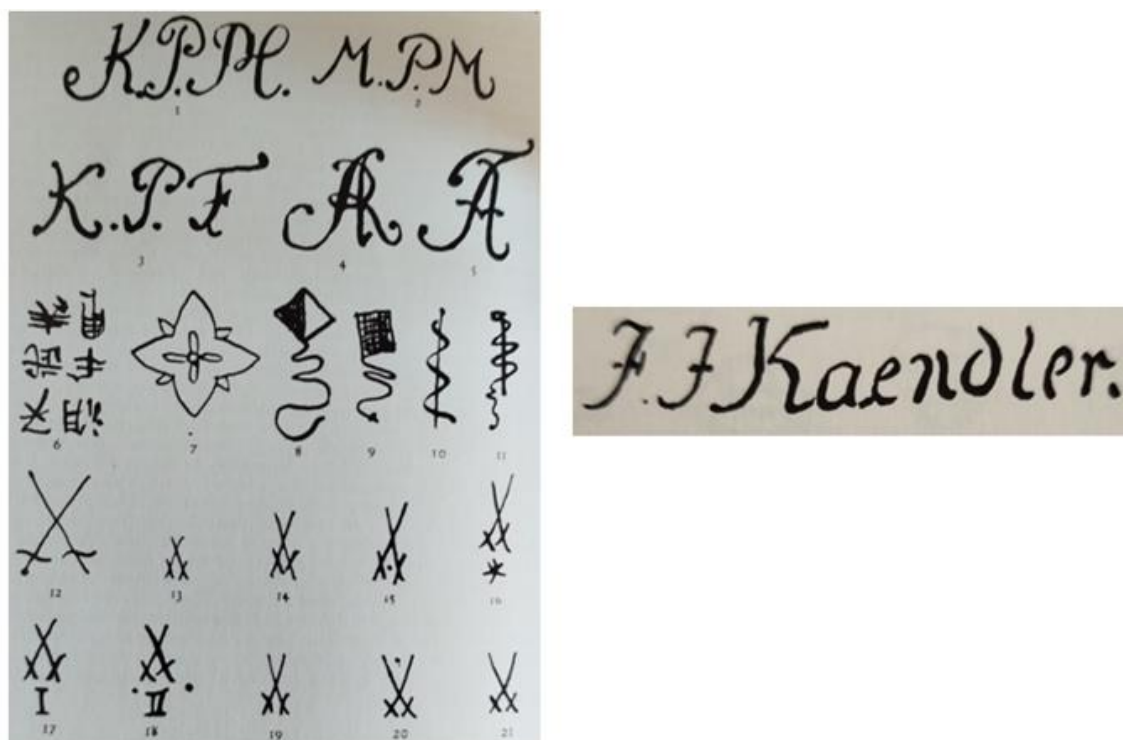 K.P.M. M.P.M
1 2
K.P.F AR A
3 4 5
6 7 8 9 10 11
12 13 14 15 16
I II
17 18 19 20 21
J.J Kaendler.